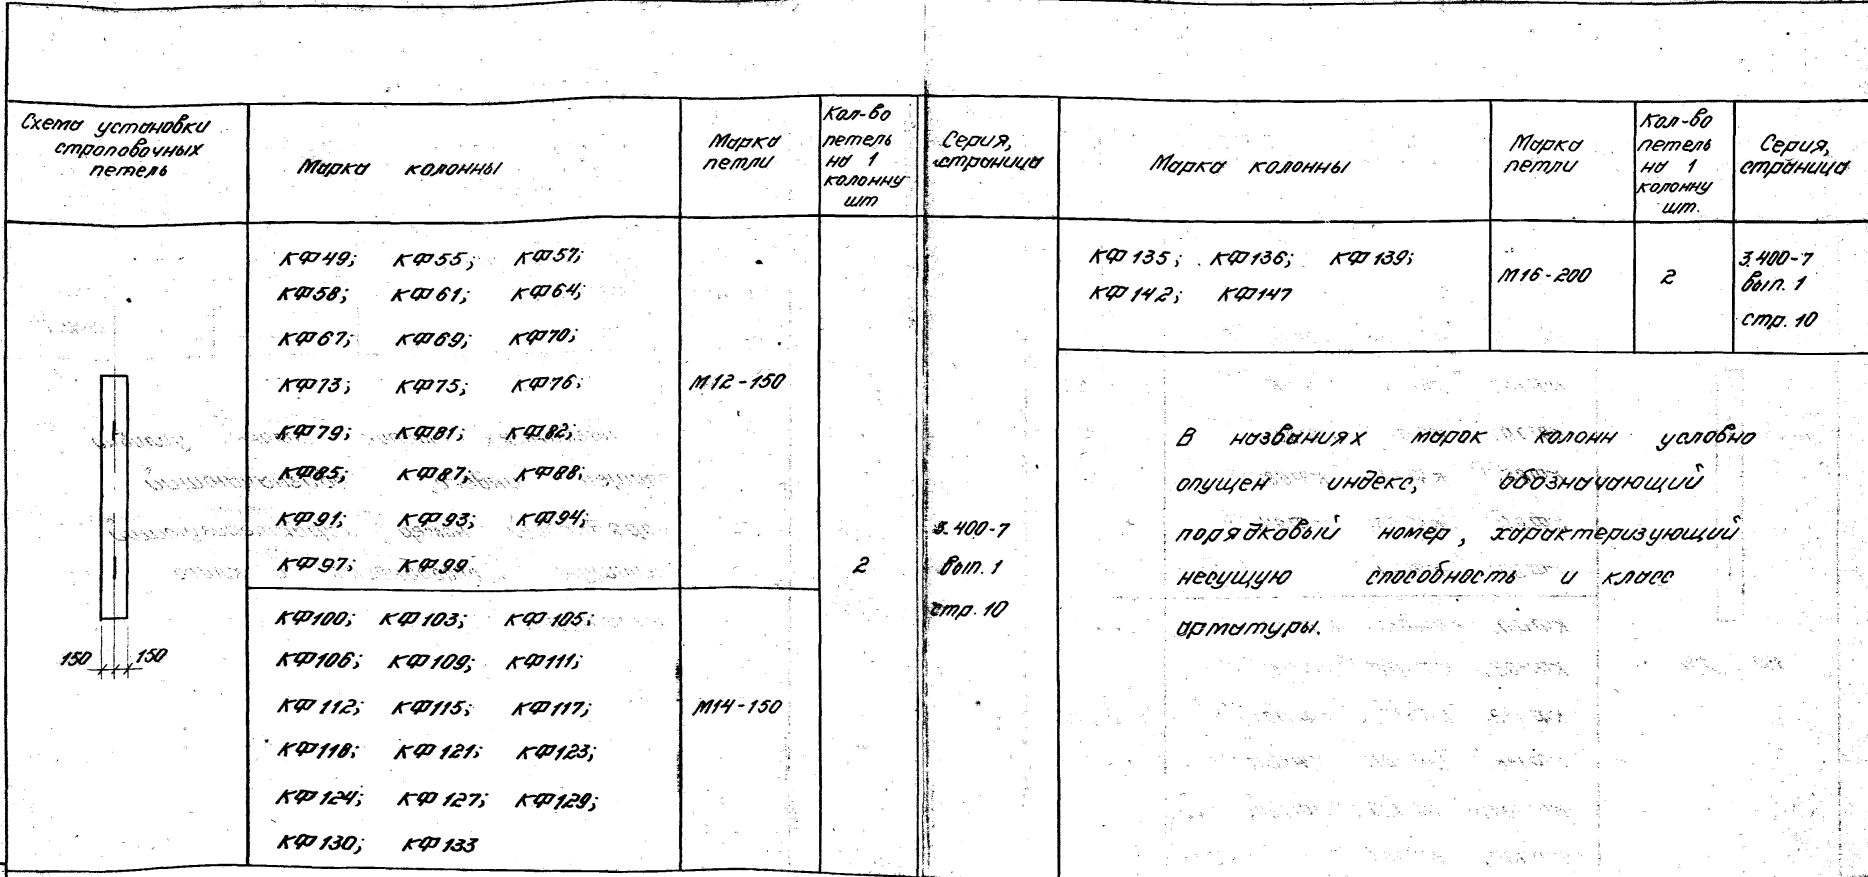 Схема установки
строповочных
петель
Марка колонны
Марка
петли
Кол-во
петель
на 1
колонну
шт
Серия,
страница
КФ49; КФ55; КФ57;
КФ58; КФ61; КФ64;
КФ67; КФ69; КФ70;
КФ73; КФ75; КФ76;
КФ79; КФ81; КФ82;
КФ85; КФ87; КФ88;
КФ91; КФ93; КФ94;
КФ97; КФ99
М12-150
КФ100; КФ103; КФ105;
КФ106; КФ109; КФ111;
КФ112; КФ115; КФ117;
КФ118; КФ121; КФ123;
КФ124; КФ127; КФ129;
КФ130; КФ133
М14-150
2
3.400-7
Вып. 1
стр. 10
150 150
Марка колонны
Марка
петли
Кол-во
петель
на 1
колонну
шт.
Серия,
страница
КФ135; КФ136; КФ139;
КФ142; КФ147
М16-200
2
3.400-7
Вып. 1
стр. 10
В названиях марок колонн условно
опущен индекс, обозначающий
порядковый номер, характеризующий
несущую способность и класс
арматуры.